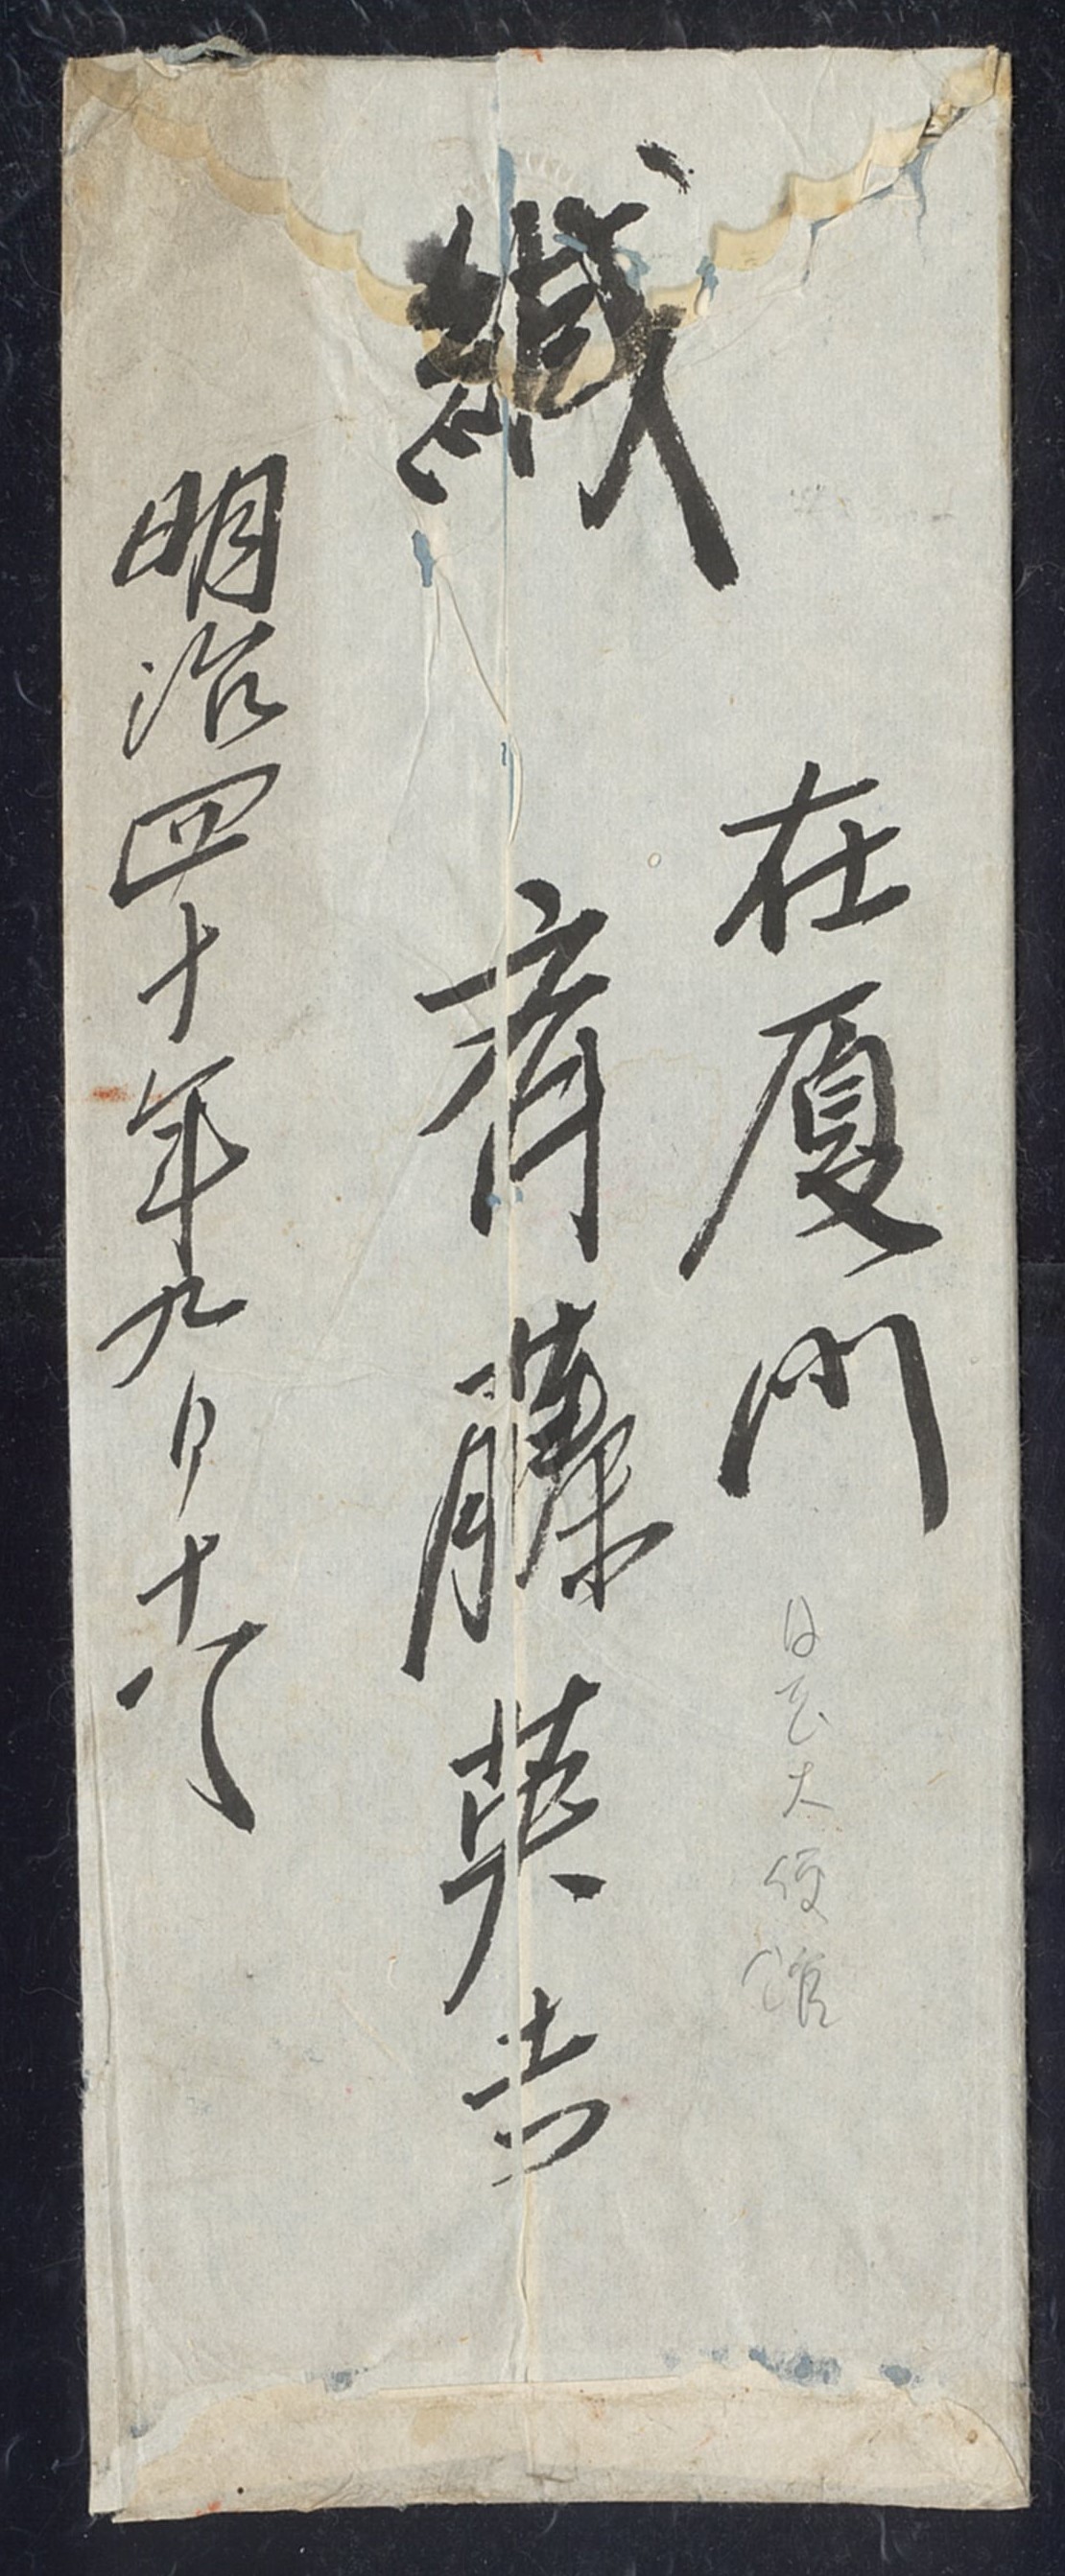 緘
在厦門
日本大使館
斉藤英吉
明治四十年九月十八